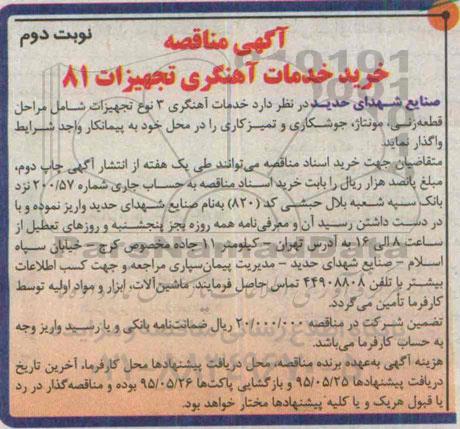 نوبت دوم
آگهی مناقصه
خرید خدمات آهنگری تجهیزات ۸۱
صنایع شهدای حدید در نظر دارد خدمات آهنگری ۳ نوع تجهیزات شامل مراحل
قطعه‌زنی، مونتاژ، جوشکاری و تمیزکاری را در محل خود به پیمانکار واجد شرایط
واگذار نماید.
متقاضیان جهت خرید اسناد مناقصه می‌توانند طی یک هفته از انتشار آگهی چاپ دوم،
مبلغ پانصد هزار ریال را بابت خرید اسناد مناقصه به حساب جاری شماره ۲۰۰/۵۷ نزد
بانک سپه شعبه بلال حبشی کد (۸۲۰) به‌نام صنایع شهدای حدید واریز نموده و با
در دست داشتن رسید آن و معرفی‌نامه همه روزه بجز پنجشنبه و روزهای تعطیل از
ساعت ۸ الی ۱۶ به آدرس تهران – کیلومتر ۱۱ جاده مخصوص کرج – خیابان سپاه
اسلام – صنایع شهدای حدید – مدیریت پیمان‌سپاری مراجعه و جهت کسب اطلاعات
بیشتر با تلفن ۴۴۹۰۸۸۰۸ تماس حاصل فرمایند. ماشین‌آلات، ابزار و مواد اولیه توسط
کارفرما تأمین می‌گردد.
تضمین شرکت در مناقصه ۲۰/۰۰۰/۰۰۰ ریال ضمانت‌نامه بانکی و یا رسید واریز وجه
به حساب کارفرما می‌باشد.
هزینه آگهی به‌عهده برنده مناقصه، محل دریافت پیشنهادها محل کارفرما، آخرین تاریخ
دریافت پیشنهادها ۹۵/۰۵/۲۵ و بازگشایی پاکت‌ها ۹۵/۰۵/۲۶ بوده و مناقصه‌گذار در رد
یا قبول هریک و یا کلیه پیشنهادها مختار خواهد بود.